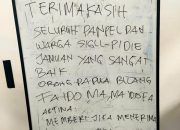 TERIMAKASIH
SELURUH PANPEL DAN
WARGA SIGLI-PIDIE
JAMUAN YANG SANGAT
BAIK
ORANG PAPUA BILANG
FAIDO MA.MA YOSFA
ARTINA:
MEMBERI JIKA MENERIMA